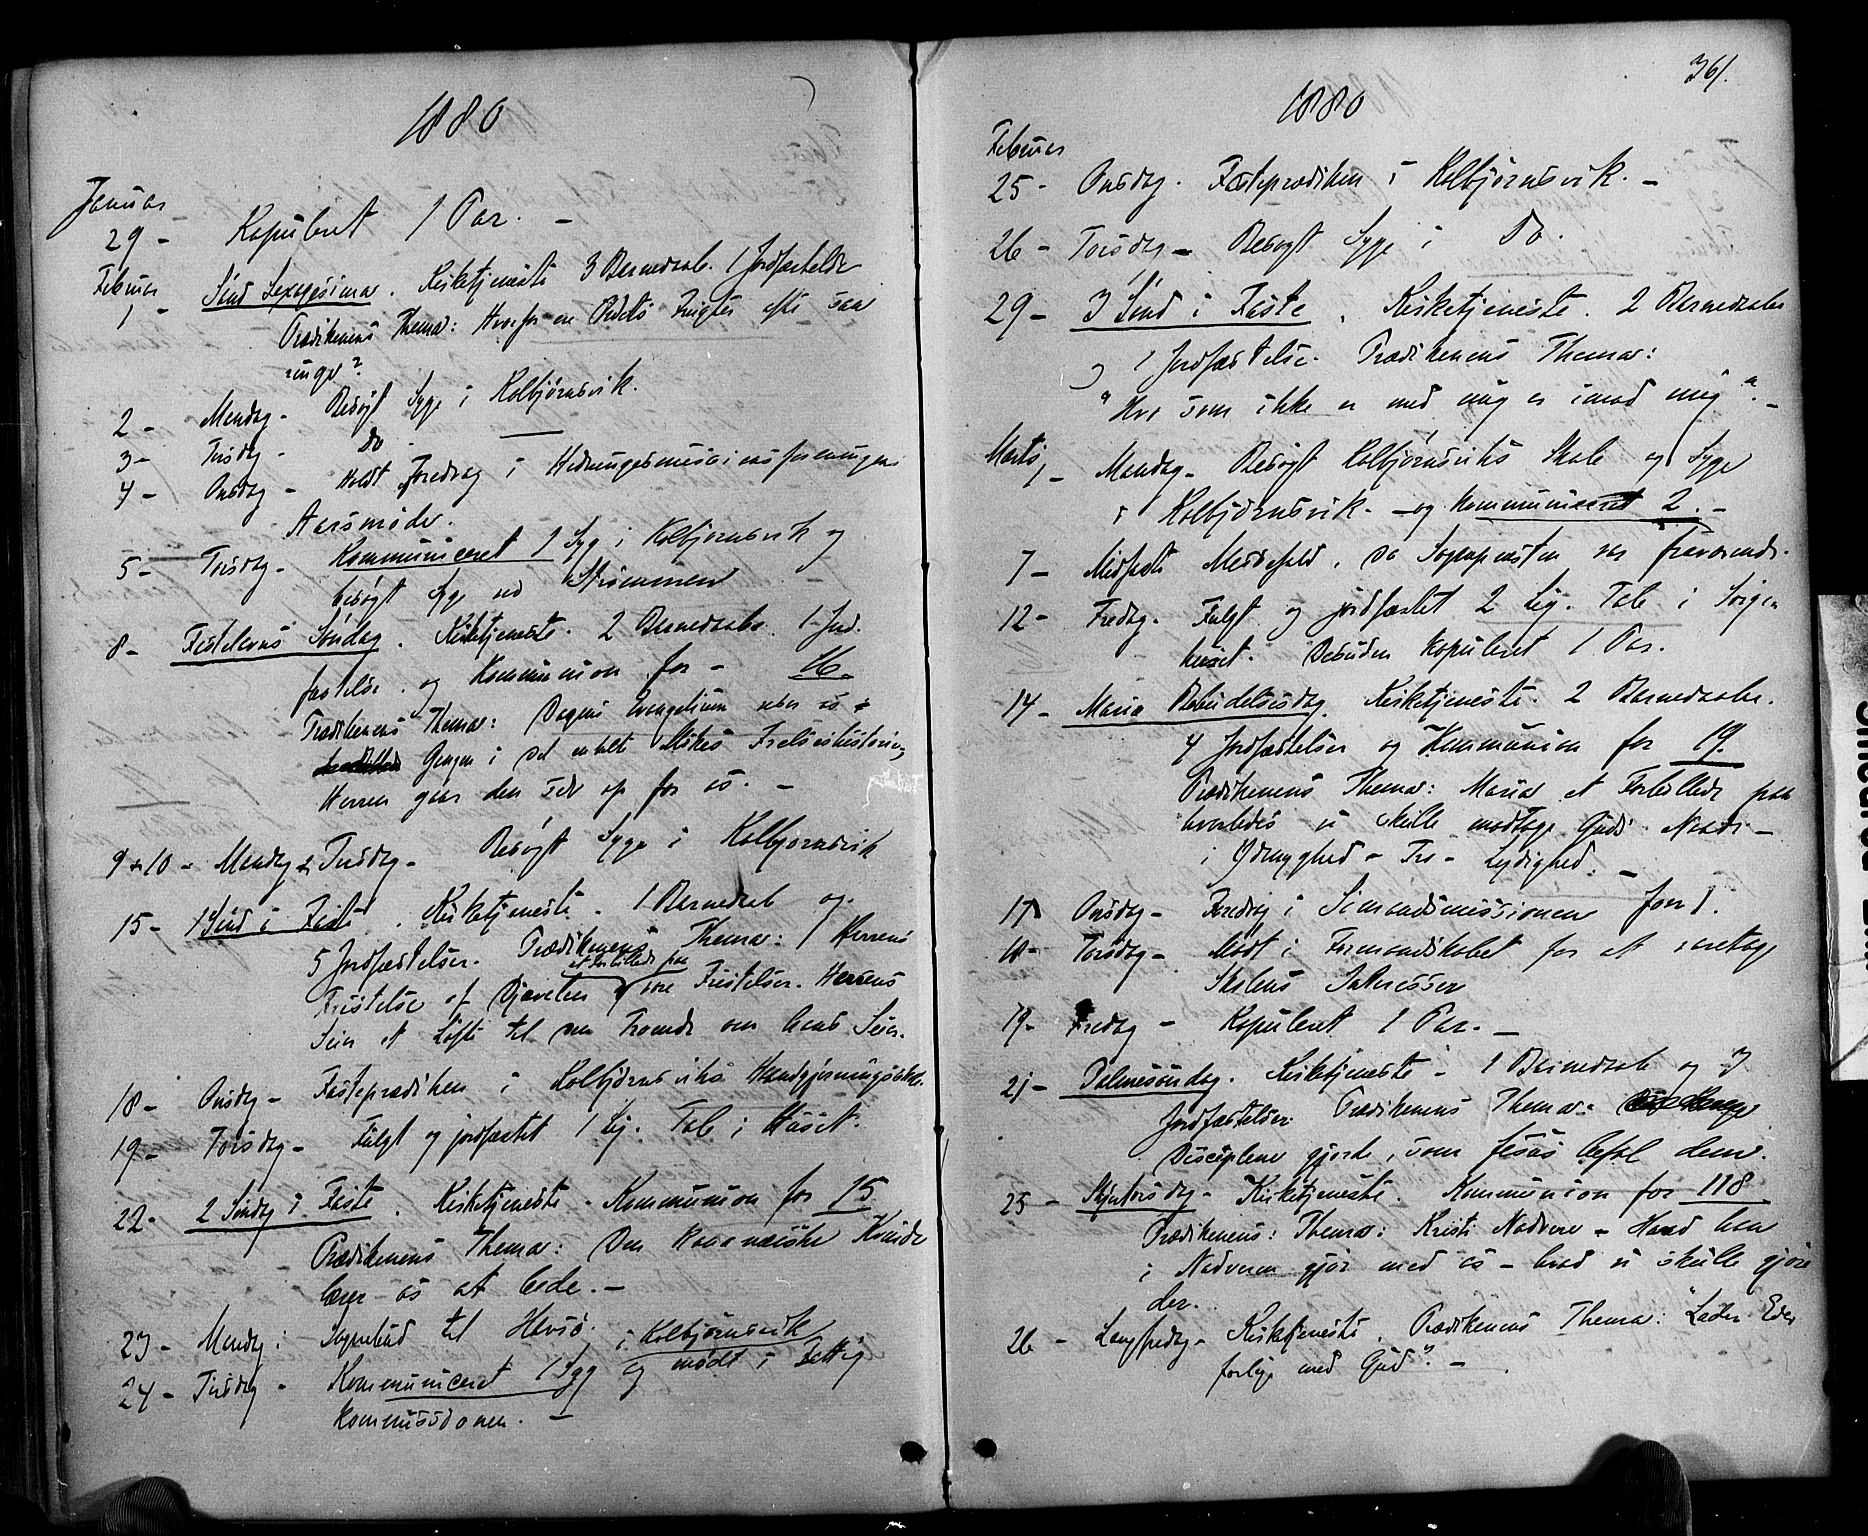 1880
Januar
29 - Kopuleret 1 Par. -
Februar
1 - Sønd Sexagesima. Kirketjeneste 3 Barnedaab. 1 Jordfæstelse
Prædikenens Thema: Hvorfor er Ordets Frugter ofte saa
ringe?
2 - Mandag - Besøgt Syge i Kolbjørnsvik.
3 - Tirsdag - Do -
4 - Onsdag - Holdt Foredrag i Hedningemissionsforeningens
Aarsmøde.
5 - Torsdag - Kommuniceret 1 Syg i Kolbjørnsvik og
besøgt Syge ved Strømmen
8 - Fastelavns Søndag. Kirketjeneste. 2 Barnedaabe. 1 Jord-
fæstelse. og Kommunion for - 16.
Prædikenens Thema: Dagens Evangelium viser os
Gangen i det enkelte Frelseshistorie,
Herren gaar den Vei op for os. -
9 & 10 - Mandag & Tirsdag - Besøgt Syge i Kolbjørnsvik
15 - 1 Sønd i Faste. Kirketjeneste. 1 Barnedaab og
5 Jordfæstelser. Prædikenens Thema: I Herrens
Fristelse af Djævelen et Forbillede paa vore Fristelser. Herrens
Seier et Løfte til den Troende om hans Seier.
18 - Onsdag - Fasteprædiken i Kolbjørnsviks
19 - Torsdag - Fulgt og jordfæstet 1 Lig. Tale i Huset.
22 - 2 Søndag i Faste. Kirketjeneste - Kommunion for 15
Prædikenens Thema: Den kananæiske Kvinde
lærer os at bede. -
23 - Mandag: Sognebud til Havsø.
24 - Tirsdag - Kommuniceret 1 Syg i Kolbjørnsvik og mødt i Fattig
kommissionen. -
361.
1880
Februar
25 - Onsdag. Fasteprædiken i Kolbjørnsvik. -
26 - Torsdag - Besøgt Syge i Do.
29 - 3 Sønd i Faste. Kirketjeneste. 2 Barnedaabe
og 1 Jordfæstelse. Prædikenens Thema:
"Hvo som ikke er med mig er imod mig". -
Marts
1 - Mandag - Besøgt Kolbjørnsviks Skole og Syge
i Kolbjørnsvik - og kommuniceret 2. -
7 - Midfaste Messefald, da Sognepræsten var fraværende.
12 - Fredag. Fulgt og jordfæstet 2 Lig. Tale i Sørge-
huset. Desuden kopuleret 1 Par.
14 - Maria Bebudelsesdag. Kirketjeneste. 2 Barnedaabe.
4 Jordfæstelser og Kommunion for 19.
Prædikenens Thema: Maria et Forbillede paa
hvorledes vi skulle modtage Guds Naade -
i Ydmyghed - Tro - Lydighed. -
17 Onsdag - Foredrag i Sømandsmissionens
18 - Torsdag - Mødt i Formandskabet for at varetage
Skolens Interesser
19 - Fredag - Kopuleret 1 Par. -
21 - Palmesøndag. Kirketjeneste - 1 Barnedaab og 3
Jordfæstelser. Prædikenens Thema:
Disciplene gjorde, som Jesus befol dem.
25 - Skjærtorsdag - Kirketjeneste. Kommunion for 118
Prædikenens: Thema: Kristi Nadvere - Hvad han
i Nadveren gjør med os - hvad vi skulle gjøre
der.
26 - Langfredag - Kirketjeneste. Prædikenens Thema: "Lader Eder
forlige med Gud". -